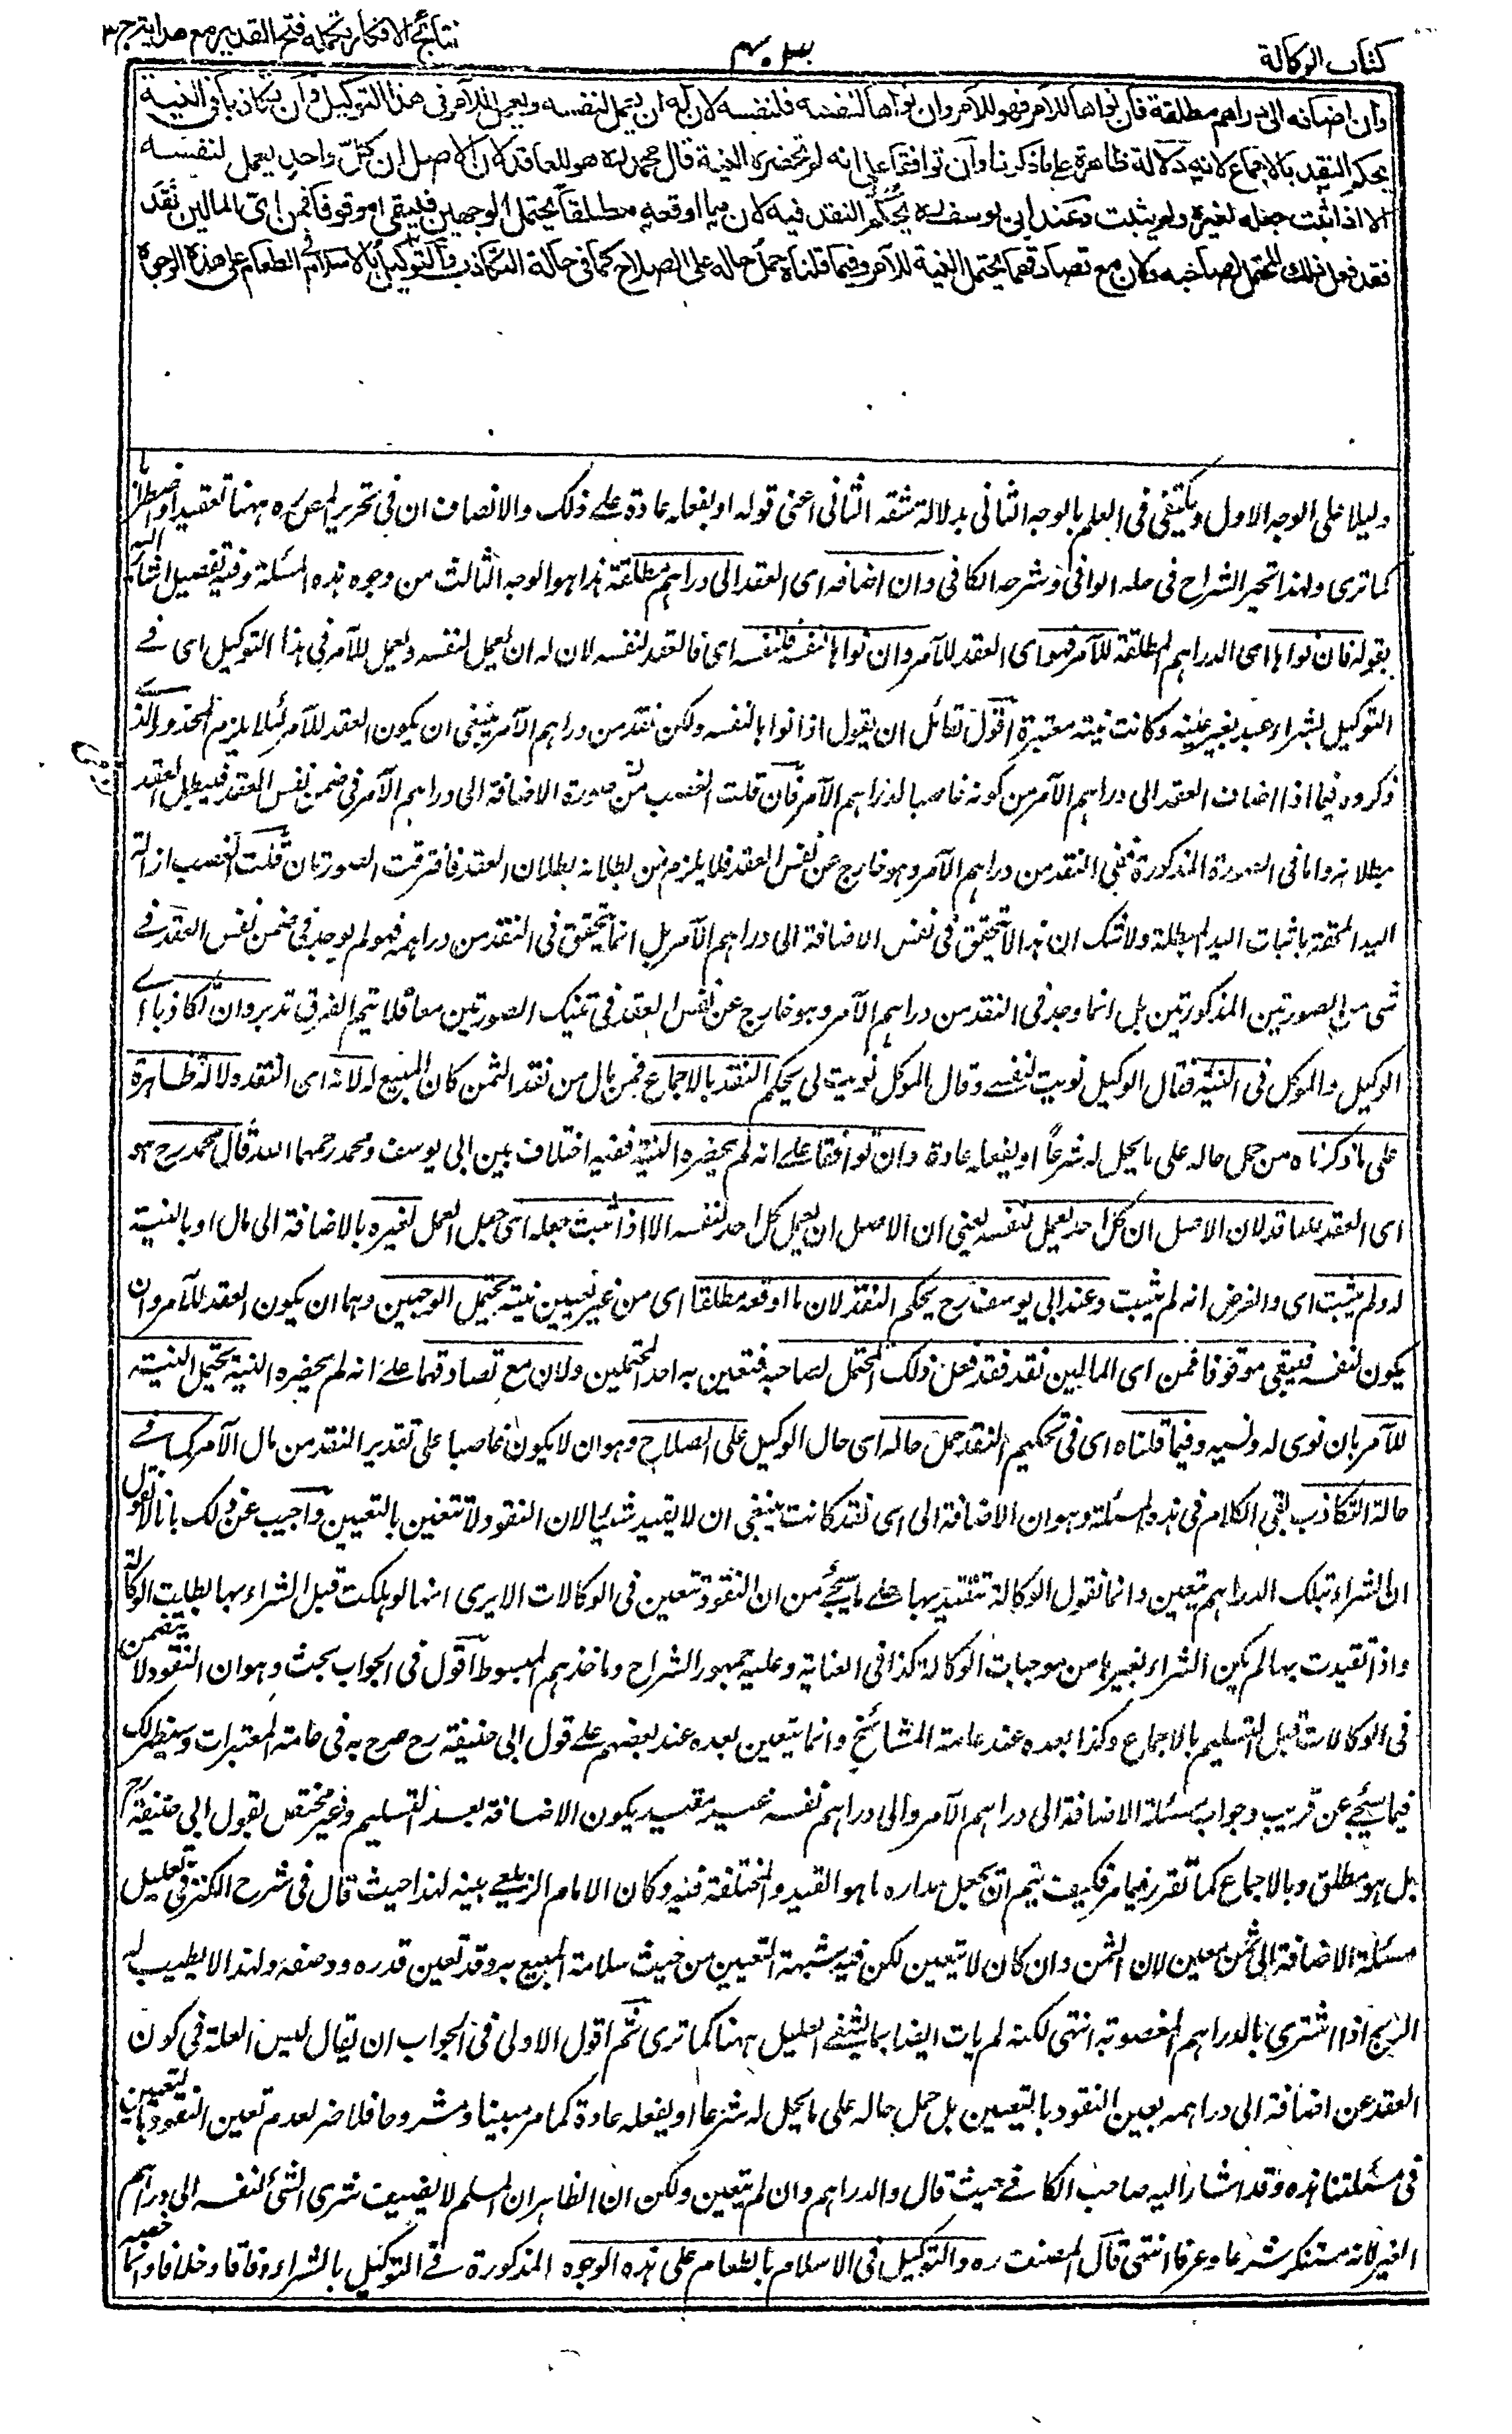 كتاب الوكالة
نتائج الافكار تكملة فتح القدير مع هداية ج ٣
وان اضافه الى دراهم مطلقة فان نواها للآمر فهو للآمر وان نواها لنفسه فلنفسه لان له ان يعمل لنفسه ويعمل للآمر فى هذا التوكيل وان تكاذبا فى النية
يحكم النقد بالاجماع لانه دلالة ظاهرة على ما ذكرنا وان توافقا على انه لم تحضره النية قال محمد ره هو للعاقد لان الاصل ان كل واحد يعمل لنفسه
الا اذا ثبت جعله لغيره ولم يثبت وعند ابى يوسف ره يحكم النقد فيه لان ما اوقعه مطلقا يحتمل الوجهين فيبقى موقوفا فمن اى المالين نقد
فقد فعل ذلك المحتمل لصاحبه ولان مع تصادقهما يحتمل النية للآمر وفيما قلناه حمل حاله على الصلاح كما فى حالة التكاذب والتوكيل بالاسلام فى الطعام على هذه الوجوه
دليلا على الوجه الاول ويكتفى فى العلم بالوجه الثانى بدلالة شقه الثانى اعنى قوله او يفعله عادة على ذلك والانصاف ان فى تحرير المص ره ههنا تعقيدا واضطرابا
كما ترى ولهذا تحير الشراح فى حله الوافى وشرحه الكافى وان اضافه اى العقد الى دراهم مطلقة هذا هو الوجه الثالث من وجوه هذه المسئلة وفيه تفصيل اشار اليه
بقوله فان نواها اى الدراهم المطلقة للآمر فهو اى العقد للآمر وان نواها لنفسه فلنفسه اى فالعقد لنفسه لان له ان يعمل لنفسه ويعمل للآمر فى هذا التوكيل اى فى
التوكيل بشراء عبد بغير عينه وكانت نيته معتبرة اقول لقائل ان يقول اذا نواها لنفسه ولكن نقد من دراهم الآمر ينبغى ان يكون العقد للآمر لئلا يلزم المحذور الذى
ذكروه فيما اذا اضاف العقد الى دراهم الآمر من كونه غاصبا لدراهم الآمر فان قلت الغصب فى صورة الاضافة الى دراهم الآمر فى ضمن نفس العقد فيبطل العقد
ببطلانه واما فى الصورة المذكورة ففى النقد من دراهم الآمر وهو خارج عن نفس العقد فلا يلزم من بطلانه بطلان العقد فافترقت الصورتان قلت الغصب ازالة
اليد المحقة باثبات اليد المبطلة ولا شك ان هذا لا يتحقق فى نفس الاضافة الى دراهم الآمر بل انما يتحقق فى النقد من دراهمه فهو لم يوجد فى ضمن نفس العقد فى
شئ من الصورتين المذكورتين بل انما وجد فى النقد من دراهم الآمر وهو خارج عن نفس العقد فى تينك الصورتين معا فلا يتم الفرق تدبر وان تكاذبا اى
الوكيل والموكل فى النية فقال الوكيل نويت لنفسى وقال الموكل نويت لى يحكم النقد بالاجماع فمن مال من نقد الثمن كان المبيع له لانه اى النقد دلالة ظاهرة
على ما ذكرناه من حمل حاله على ما يحل له شرعا او يفعله عادة وان توافقا على انه لم يحضره النية ففيه اختلاف بين ابى يوسف ومحمد رحمهما الله قال محمد رح هو
اى العقد للعاقد لان الاصل ان كل احد يعمل لنفسه يعنى ان الاصل ان يعمل كل احد لنفسه الا اذا ثبت جعله اى جعل العمل لغيره بالاضافة الى مال او بالنية
له ولم يثبت اى والفرض انه لم يثبت وعند ابى يوسف رح يحكم النقد لان ما اوقعه مطلقا اى من غير تعيين نيته يحتمل الوجهين وهما ان يكون العقد للآمر وان
يكون لنفسه فيبقى موقوفا فمن اى المالين نقد فقد فعل ذلك المحتمل لصاحبه فتعين به احد المحتملين ولان مع تصادقهما على انه لم يحضره النية يحتمل النية
للآمر بان نوى له ونسيه وفيما قلناه اى فى تحكيم النقد حمل حاله اى حال الوكيل على الصلاح وهو ان لا يكون غاصبا على تقدير النقد من مال الآمر كما فى
حالة التكاذب بقى الكلام فى هذه المسئلة وهو ان الاضافة الى اى نقد كانت ينبغى ان لا يفيد شيئا لان النقود لا تتعين بالتعيين واجيب عن ذلك بانا لا نقول
ان الشراء بتلك الدراهم يتعين وانما نقول الوكالة تتقيد بها على ما سيجئ من ان النقود تتعين فى الوكالات الا يرى انها لو هلكت قبل الشراء بها بطلت الوكالة
واذا تقيدت بها لم يكن الشراء بغيرها من موجبات الوكالة كذا فى العناية وعليه جمهور الشراح وماخذهم المبسوط اقول فى الجواب بحث وهو ان النقود لا تتعين
فى الوكالات قبل التسليم بالاجماع وكذا بعده عند عامة المشائخ وانما يتعين بعده عند بعضهم على قول ابى حنيفة رح صرح به فى عامة المعتبرات وسيظهر لك
فيما سيجئ عن قريب وجواب مسئلة الاضافة الى دراهم الآمر والى دراهم نفسه غير مقيد بكون الاضافة بعد التسليم وغير مختص بقول ابى حنيفة رح
بل هو مطلق وبالاجماع كما تقرر فيما مر فكيف يتم ان يجعل مداره ما هو المقيد والمختلف فيه وكان الامام الزيلعى تنبه لهذا حيث قال فى شرح الكنز فى تعليل
مسئلة الاضافة الى ثمن معين لان الثمن وان كان لا يتعين لكن فيه شبهة التعيين من حيث سلامة المبيع به وقد تعين قدره ووصفه ولهذا لا يطيب له
الربح اذا اشترى بالدراهم المغصوبة انتهى لكنه لم يات ايضا بما يشفى العليل ههنا كما ترى ثم اقول الاولى فى الجواب ان يقال ليس العلة فى كون
العقد عن اضافة الى دراهمه بعين النقود بالتعيين بل حمل حاله على ما يحل له شرعا او يفعله عادة كما مر مبينا ومشروحا فلا ضر لعدم تعين النقود بالتعيين
فى مسئلتنا هذه وقد اشار اليه صاحب الكافى حيث قال والدراهم وان لم يتعين ولكن ان الظاهر ان المسلم لا يضيف شرى الشئ لنفسه الى دراهم
الغير لانه مستنكر شرعا وعرفا انتهى قال المصنف ره والتوكيل فى الاسلام بالطعام على هذه الوجوه المذكورة فى التوكيل بالشراء وفاقا وخلافا وانما خصه